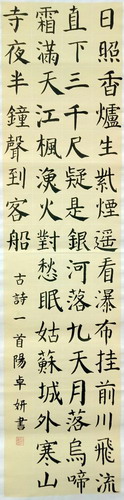 日照香爐生紫煙遙看瀑布挂前川飛流
直下三千尺疑是銀河落九天月落烏啼
霜滿天江楓漁火對愁眠姑蘇城外寒山
寺夜半鐘聲到客船
古詩一首陽卓妍書